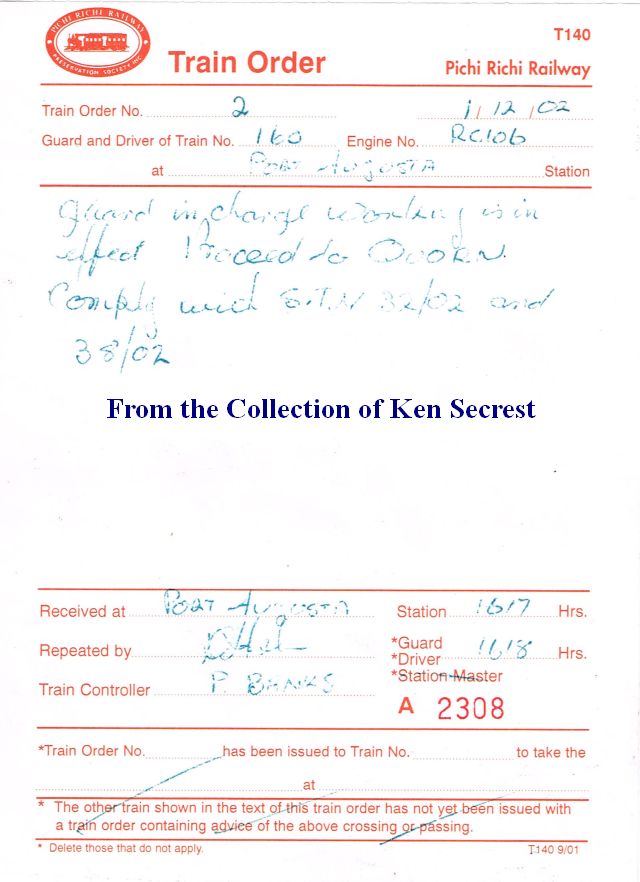 PICHI RICHI RAILWAY
PRESERVATION SOCIETY INC.
Train Order
T140
Pichi Richi Railway
Train Order No. 2 1/12/02
Guard and Driver of Train No. 160 Engine No. RC106
at PORT AUGUSTA Station
Guard in charge working is in
effect Proceed to QUORN.
Comply with S.T.N 32/02 and
38/02
From the Collection of Ken Secrest
Received at PORT AUGUSTA Station 1617 Hrs.
Repeated by *Guard 1618 Hrs.
*Driver
*Station Master
Train Controller P. BANKS
A 2308
*Train Order No. has been issued to Train No. to take the
at
* The other train shown in the text of this train order has not yet been issued with
a train order containing advice of the above crossing or passing.
* Delete those that do not apply. T140 9/01